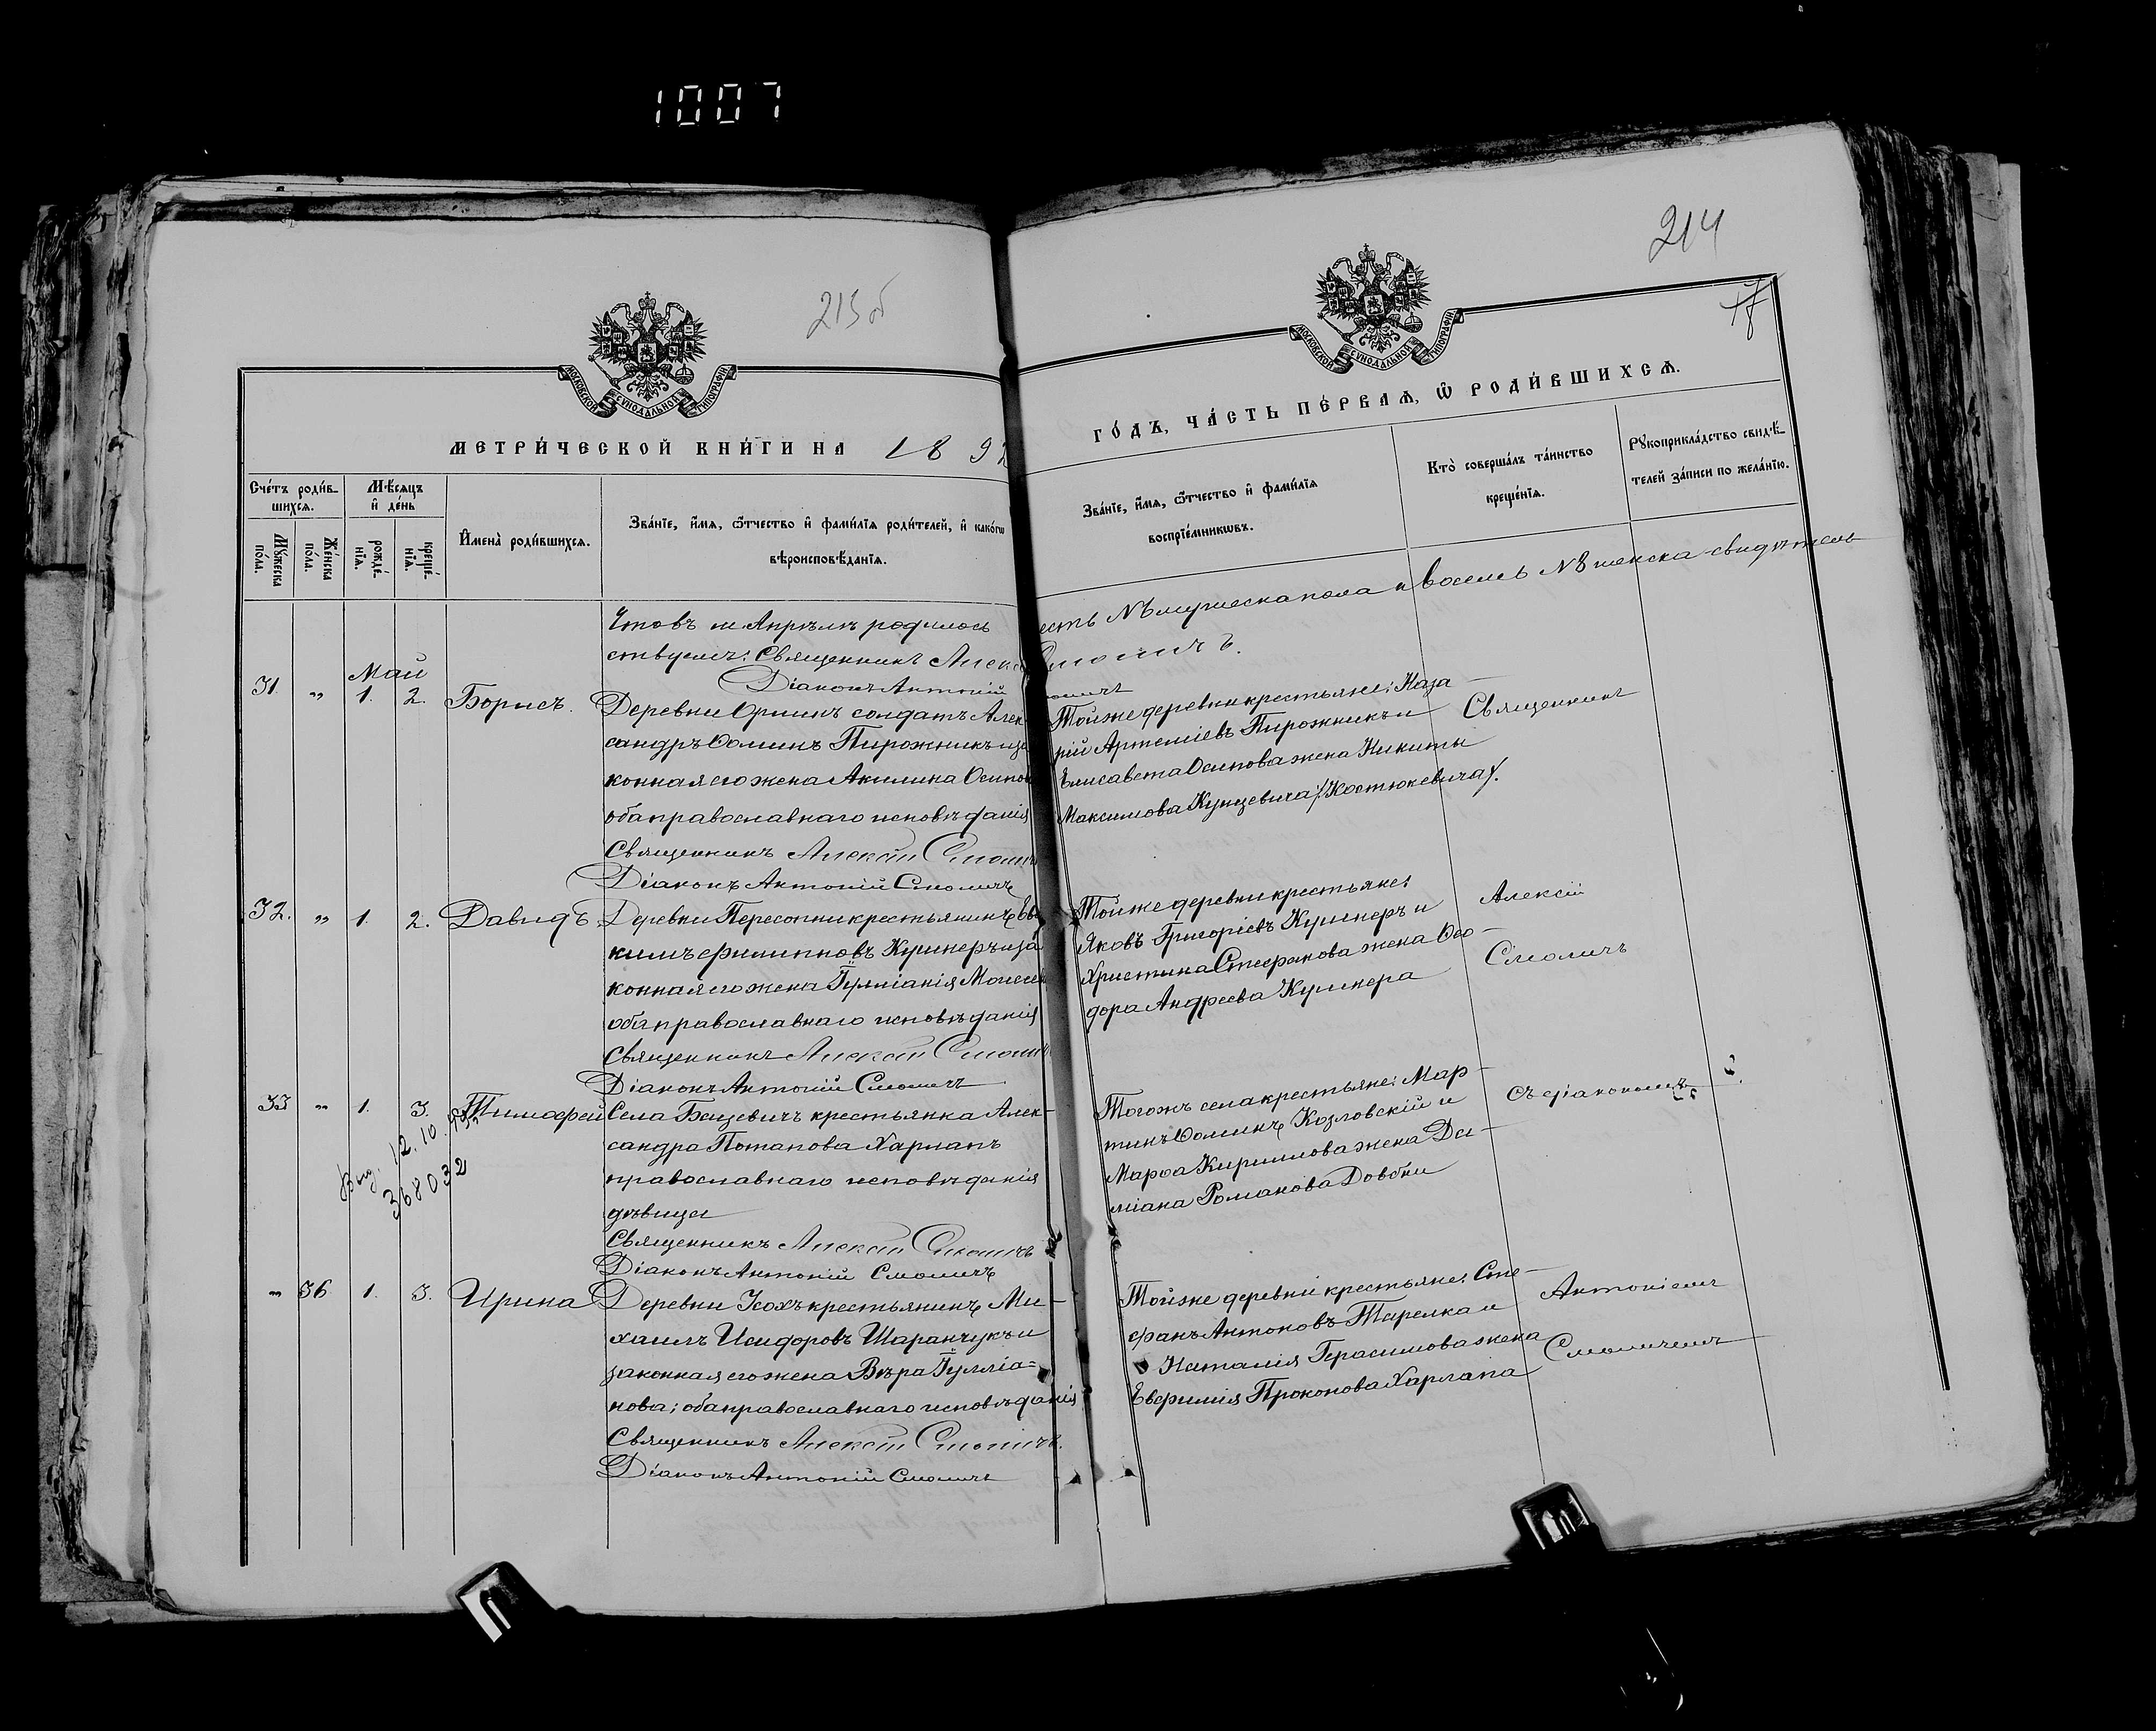 1007
213 об
214
17
МОСКОВСКОЙ СѴНОДАЛЬНОЙ ТИПОГРАФІИ
МОСКОВСКОЙ СѴНОДАЛЬНОЙ ТИПОГРАФІИ
МЕТРИ́ЧЕСКОЙ КНИ́ГИ НА 189
ГО́ДЪ, ЧА́СТЬ ПЕ́РВАЯ, Ѡ҆ РОДИ́ВШИХСЯ.
Сче́тъ роди́в-
шихся.
Мꙋ́жеска по́ла.
Же́нска по́ла.
Мѣ́сяцъ и҆ де́нь
рожде́-
нїя.
креще́-
нїя.
И҆мена̀ роди́вшихся.
Зва́нїе, и҆́мя, ѻ҆́тчество и҆ фами́лїя роди́телей, и҆ како́гѡ
вѣроисповѣ́данїя.
Зва́нїе, и҆́мя, ѻ҆́тчество и҆ фами́лїя
воспрїе́мникѡвъ.
Кто̀ соверша́лъ та́инство
креще́нїя.
Рꙋкоприкла́дство свидѣ́-
телей за́писи по жела́нїю.
Что въ м. Апрѣлѣ родилось
есть № мужеска пола и восемь №8 женска свидѣтель
ствуемъ: Священникъ Алекс
Смоличъ.
Діаконъ Антоній
Май
31. „ 1. 2. Борисъ.
Деревни солдатъ Алек-
сандръ Ѳоминъ Пирожникъ и за
конная его жена Акилина Осипов
оба православнаго исповѣданія
Священникъ Алексій Смоличъ
Діаконъ Антоній Смоличъ
Той же деревни крестьяне: Наза-
рій Артеміевъ Пирожникъ и
Елисавета Осипова жена Никиты
Максимова Кунцевича /Костюкевича/.
Священникъ
32. „ 1. 2. Давидъ
Деревни Пересопни крестьянинъ Ев
кимъ Филипповъ Кушнеръ и за
конная его жена Іуліанія Моисеев
оба православнаго исповѣданія
Священникъ Алексій Смоличъ
Діаконъ Антоній Смоличъ
Той же деревни крестьяне:
Яковъ Григоріевъ Кушнеръ и
Христина Стефанова жена Ѳео-
дора Андреева Кушнера
Алексій
Смоличъ
33 „ 1. 3. Тимофей
Выд. 12.10.
368032
Села Бацевичъ крестьянка Алек-
сандра Потапова Харлапъ
православнаго исповѣданія
дѣвица
Священникъ Алексій Смоличъ
Діаконъ Антоній Смоличъ
Тогожъ села крестьяне: Мар-
тинъ Ѳоминъ Козловскій и
Марѳа Кирилова жена Да-
міана Романова Довбни
съ діакономъ
„ 36 1. 3. Ирина
Деревни Усохъ крестьянинъ Ми-
хаилъ Исидоровъ Шаранчукъ и
законная его жена Вѣра Іулліа-
нова; оба православнаго исповѣданія
Священникъ Алексій Смоличъ.
Діаконъ Антоній Смоличъ
Той же деревни крестьяне: Сте-
фанъ Антоновъ Тарелка и
Наталія Герасимова жена
Евфимія Прокопова Харлапа
Антоніемъ
Смоличемъ